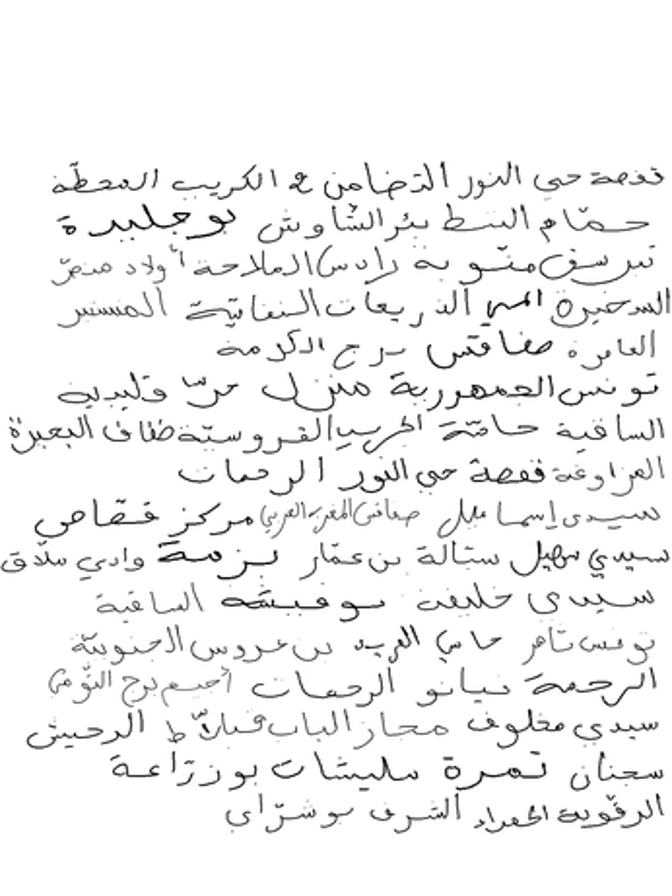 قفصة حي النور التضامن 2 الكريب المحطّة
حمّام الشط بئر الشاوش بوجليدة
تبرسق منّوبة رادس الملاحة أولاد منصر
السخيرة الذريعات النفاتيّة المنستير
العامرة صفاقس برج الكرمة
تونس الجمهورية منزل حرّ قليبية
الساقية حامّة الجريد الفروسيّة ضفاف البحيرة
العزاوغة قفصة حي النور الرحمات
سيدي إسماعيل صفاقس المغرب العربي مركز قصّاص
سيدي سهيل ستالة بن عمّار بزمة وادي ملاّق
سيدي خليف بوفيشة الساقية
تونس تاهر حاسي الفريد بن عروس الجنوبيّة
الرحمة نيانو الرحمات أحيم برج التّومي
سيدي مخلوف مجاز الباب قبلاّط الدخيش
سجنان تمرة مليشات بوزرّاعة
الرقّوبة الخضراء الشرف بوشرّاي